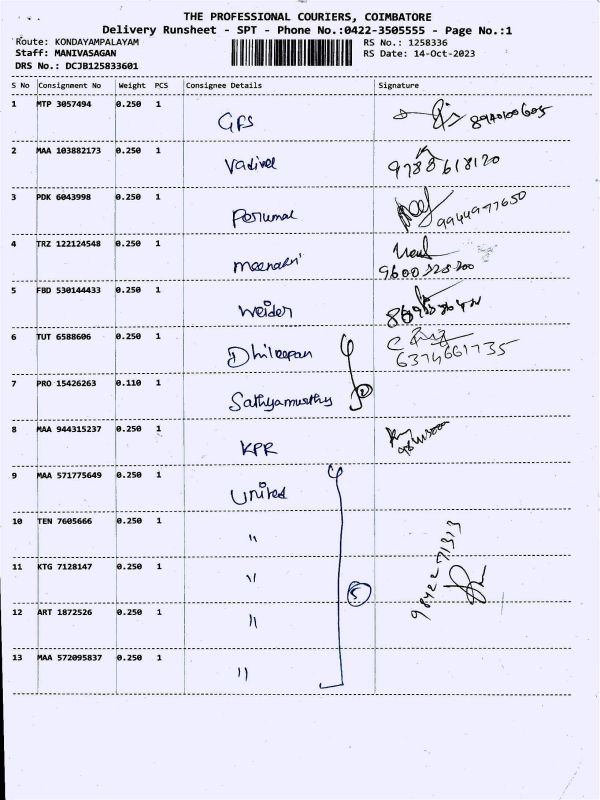 THE PROFESSIONAL COURIERS, COIMBATORE
Delivery Runsheet - SPT - Phone No.:0422-3505555 - Page No.:1
Route: KONDAYAMPALAYAM RS No.: 1258336
Staff: MANIVASAGAN RS Date: 14-Oct-2023
DRS No.: DCJB125833601
S No Consignment No Weight PCS Consignee Details Signature
1 MTP 3057494 0.250 1 GFS
2 MAA 103882173 0.250 1 Vadivel 9788618120
3 PDK 6043998 0.250 1 Perumal 9944977650
4 TRZ 122124548 0.250 1 meenakni
9600328200
5 FBD 530144433 0.250 1 Weider
6 TUT 6588606 0.250 1 Dhileepan 6374661735
7 PRO 15426263 0.110 1 Sathyamurthy 2
8 MAA 944315237 0.250 1 KPR
9 MAA 571775649 0.250 1 United
10 TEN 7605666 0.250 1 "
11 KTG 7128147 0.250 1 " 5 9842271313
12 ART 1872526 0.250 1 "
13 MAA 572095837 0.250 1 "